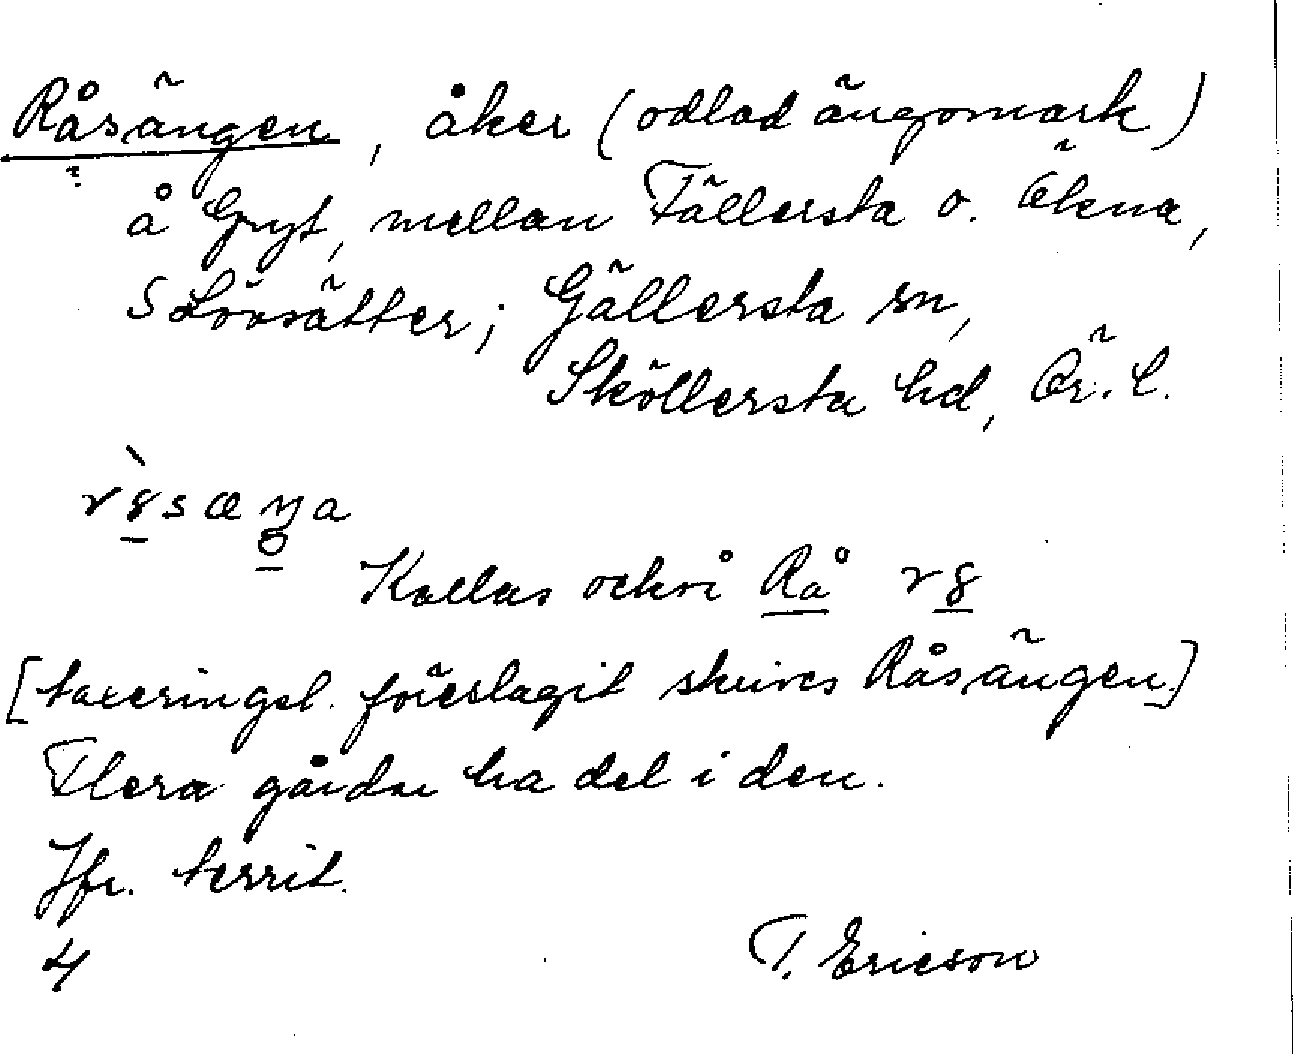 Råsängen, åker (odlad ängsmark)
å Gryt, mellan Fällersta o. Ökna,
S Lövsätter; Gällersta sn,
Sköllersta hd, Ör. l.
Kallas också Rå
[taxeringsl. föreslagit skrives Råsängen.]
Flera gårdar ha del i den.
Jfr. territ.
4
T. Ericson